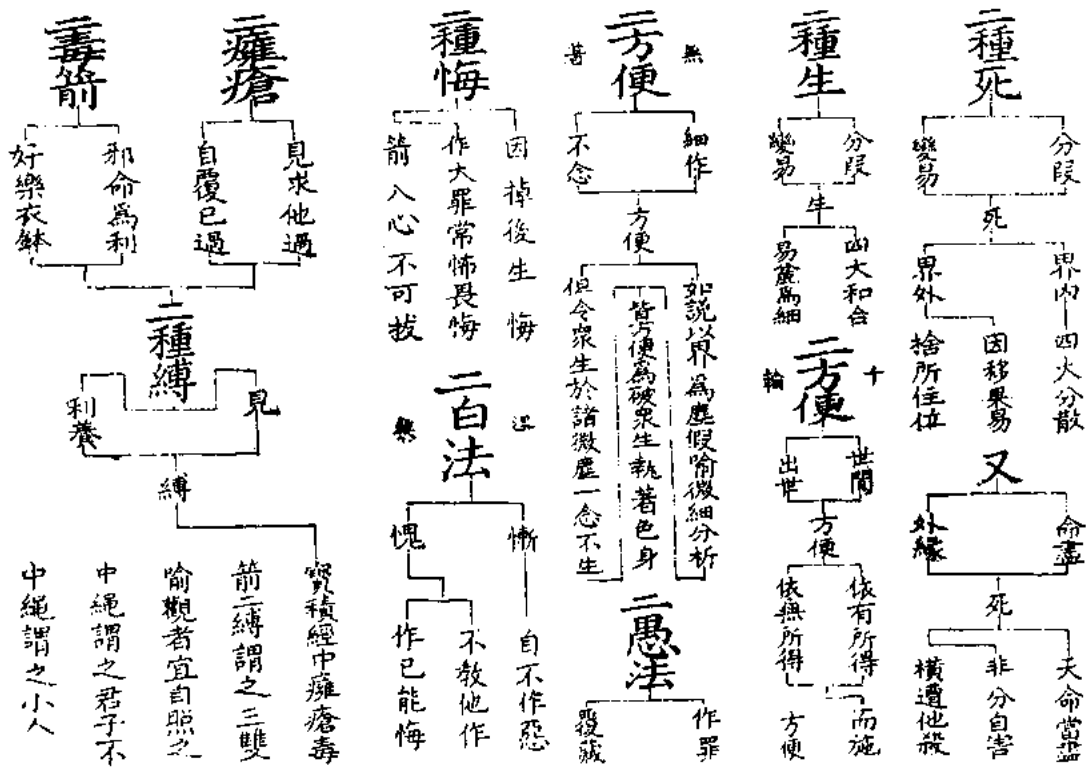 二種死
分段
變易
死
界內四大分散
界外
因移果易
捨所住位
又
命盡
外緣
死
天命當盡
非分自害
橫遭他殺
二種生
分段
變易
生
四大和合
易麄為細
二方便
十
輪
世間
出世
方便
依有所得
依無所得
而施
方便
二方便
無
著
細作
不念
方便
如說以界為塵假喻微細分析
皆方便為破眾生執著色身
但令眾生於諸微塵一念不生
二愚法
作罪
覆藏
二種悔
因掉後生悔
作大罪常怖畏悔
箭入心不可拔
二白法
慚
愧
自不作惡
不教他作
作已能悔
二癰瘡
見求他過
自覆已過
二毒箭
邪命為利
好樂衣鉢
二種縛
見
利養
縛
寶積經中癰瘡毒
箭二縛謂之三雙
喻觀者宜自照之
中繩謂之君子不
中繩謂之小人